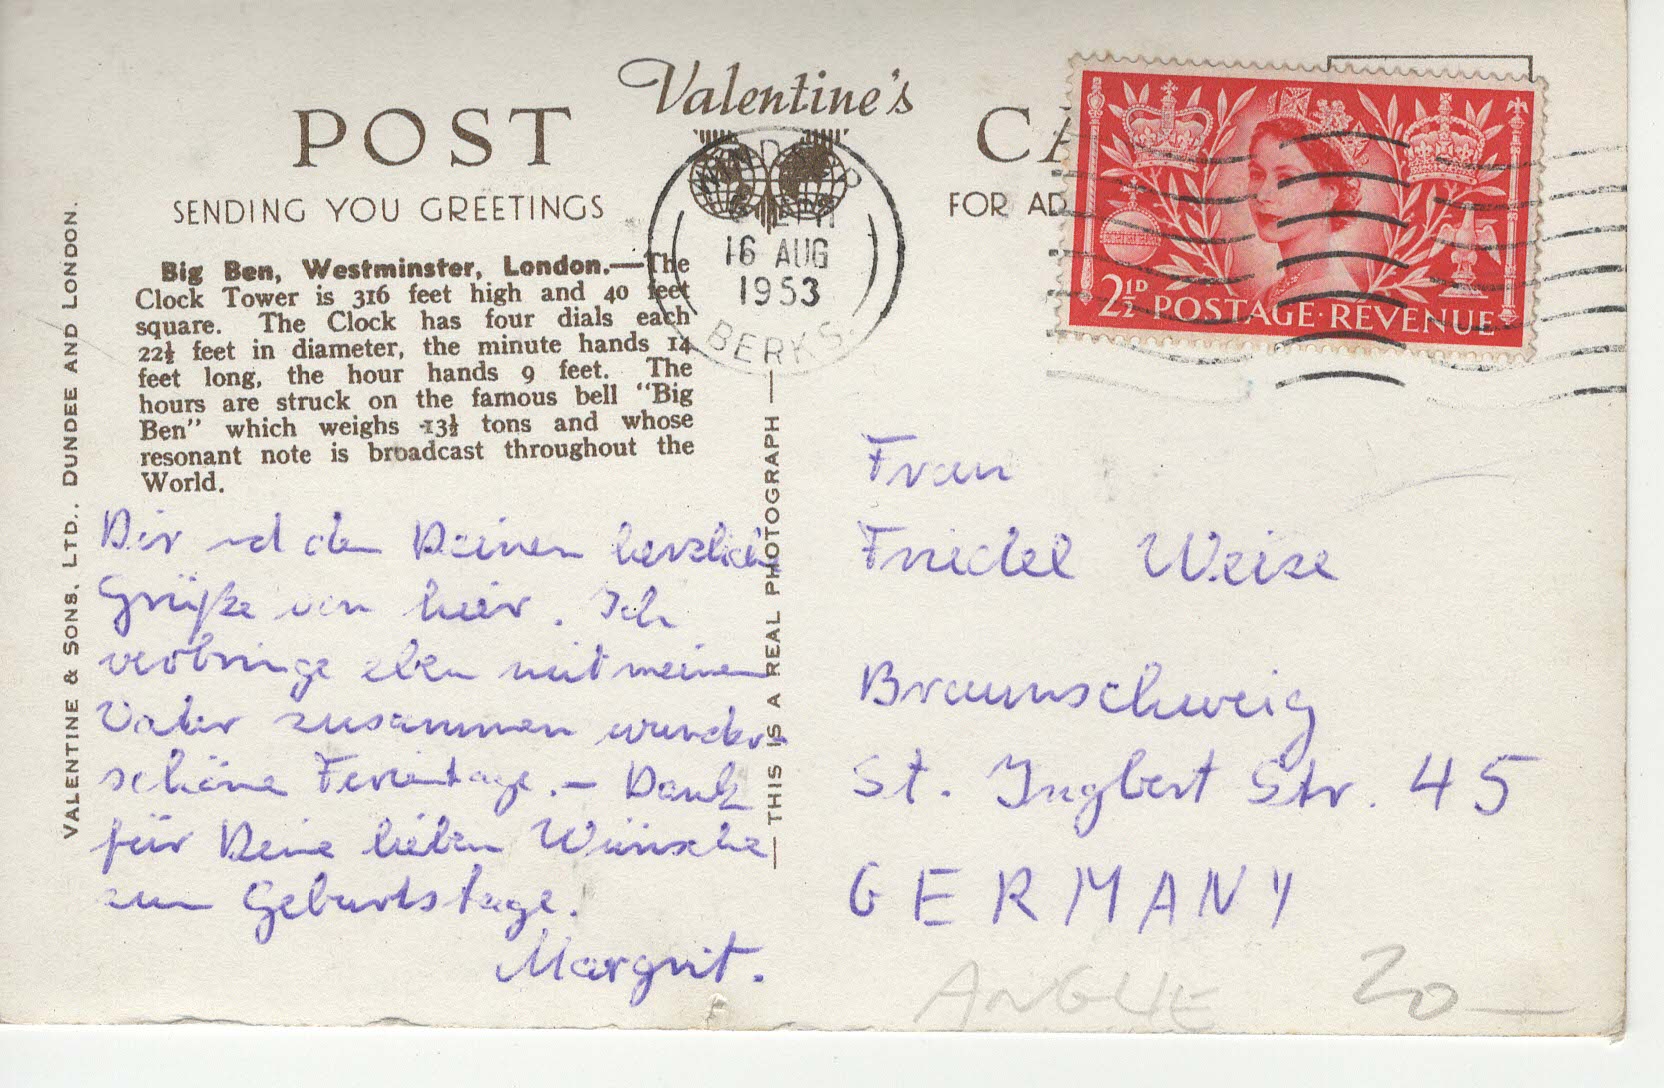 Valentine's
POST CA
SENDING YOU GREETINGS
FOR AD
Big Ben, Westminster, London.—The
Clock Tower is 316 feet high and 40 feet
square. The Clock has four dials each
22½ feet in diameter, the minute hands 14
feet long, the hour hands 9 feet. The
hours are struck on the famous bell "Big
Ben" which weighs 13½ tons and whose
resonant note is broadcast throughout the
World.
VALENTINE & SONS, LTD., DUNDEE AND LONDON.
—THIS IS A REAL PHOTOGRAPH—
WINDSOR
16 AUG
1953
BERKS.
2½D POSTAGE·REVENUE
Dir und den Deinen herzliche
Grüße von hier. Ich
verbringe eben mit meinem
Vater zusammen wunder-
schöne Ferientage. – Dank
für Deine lieben Wünsche
zum Geburtstage.
Margrit.
Frau
Friedel Weise
Braunschweig
St. Ingbert Str. 45
GERMANY
ANGLIE 20—